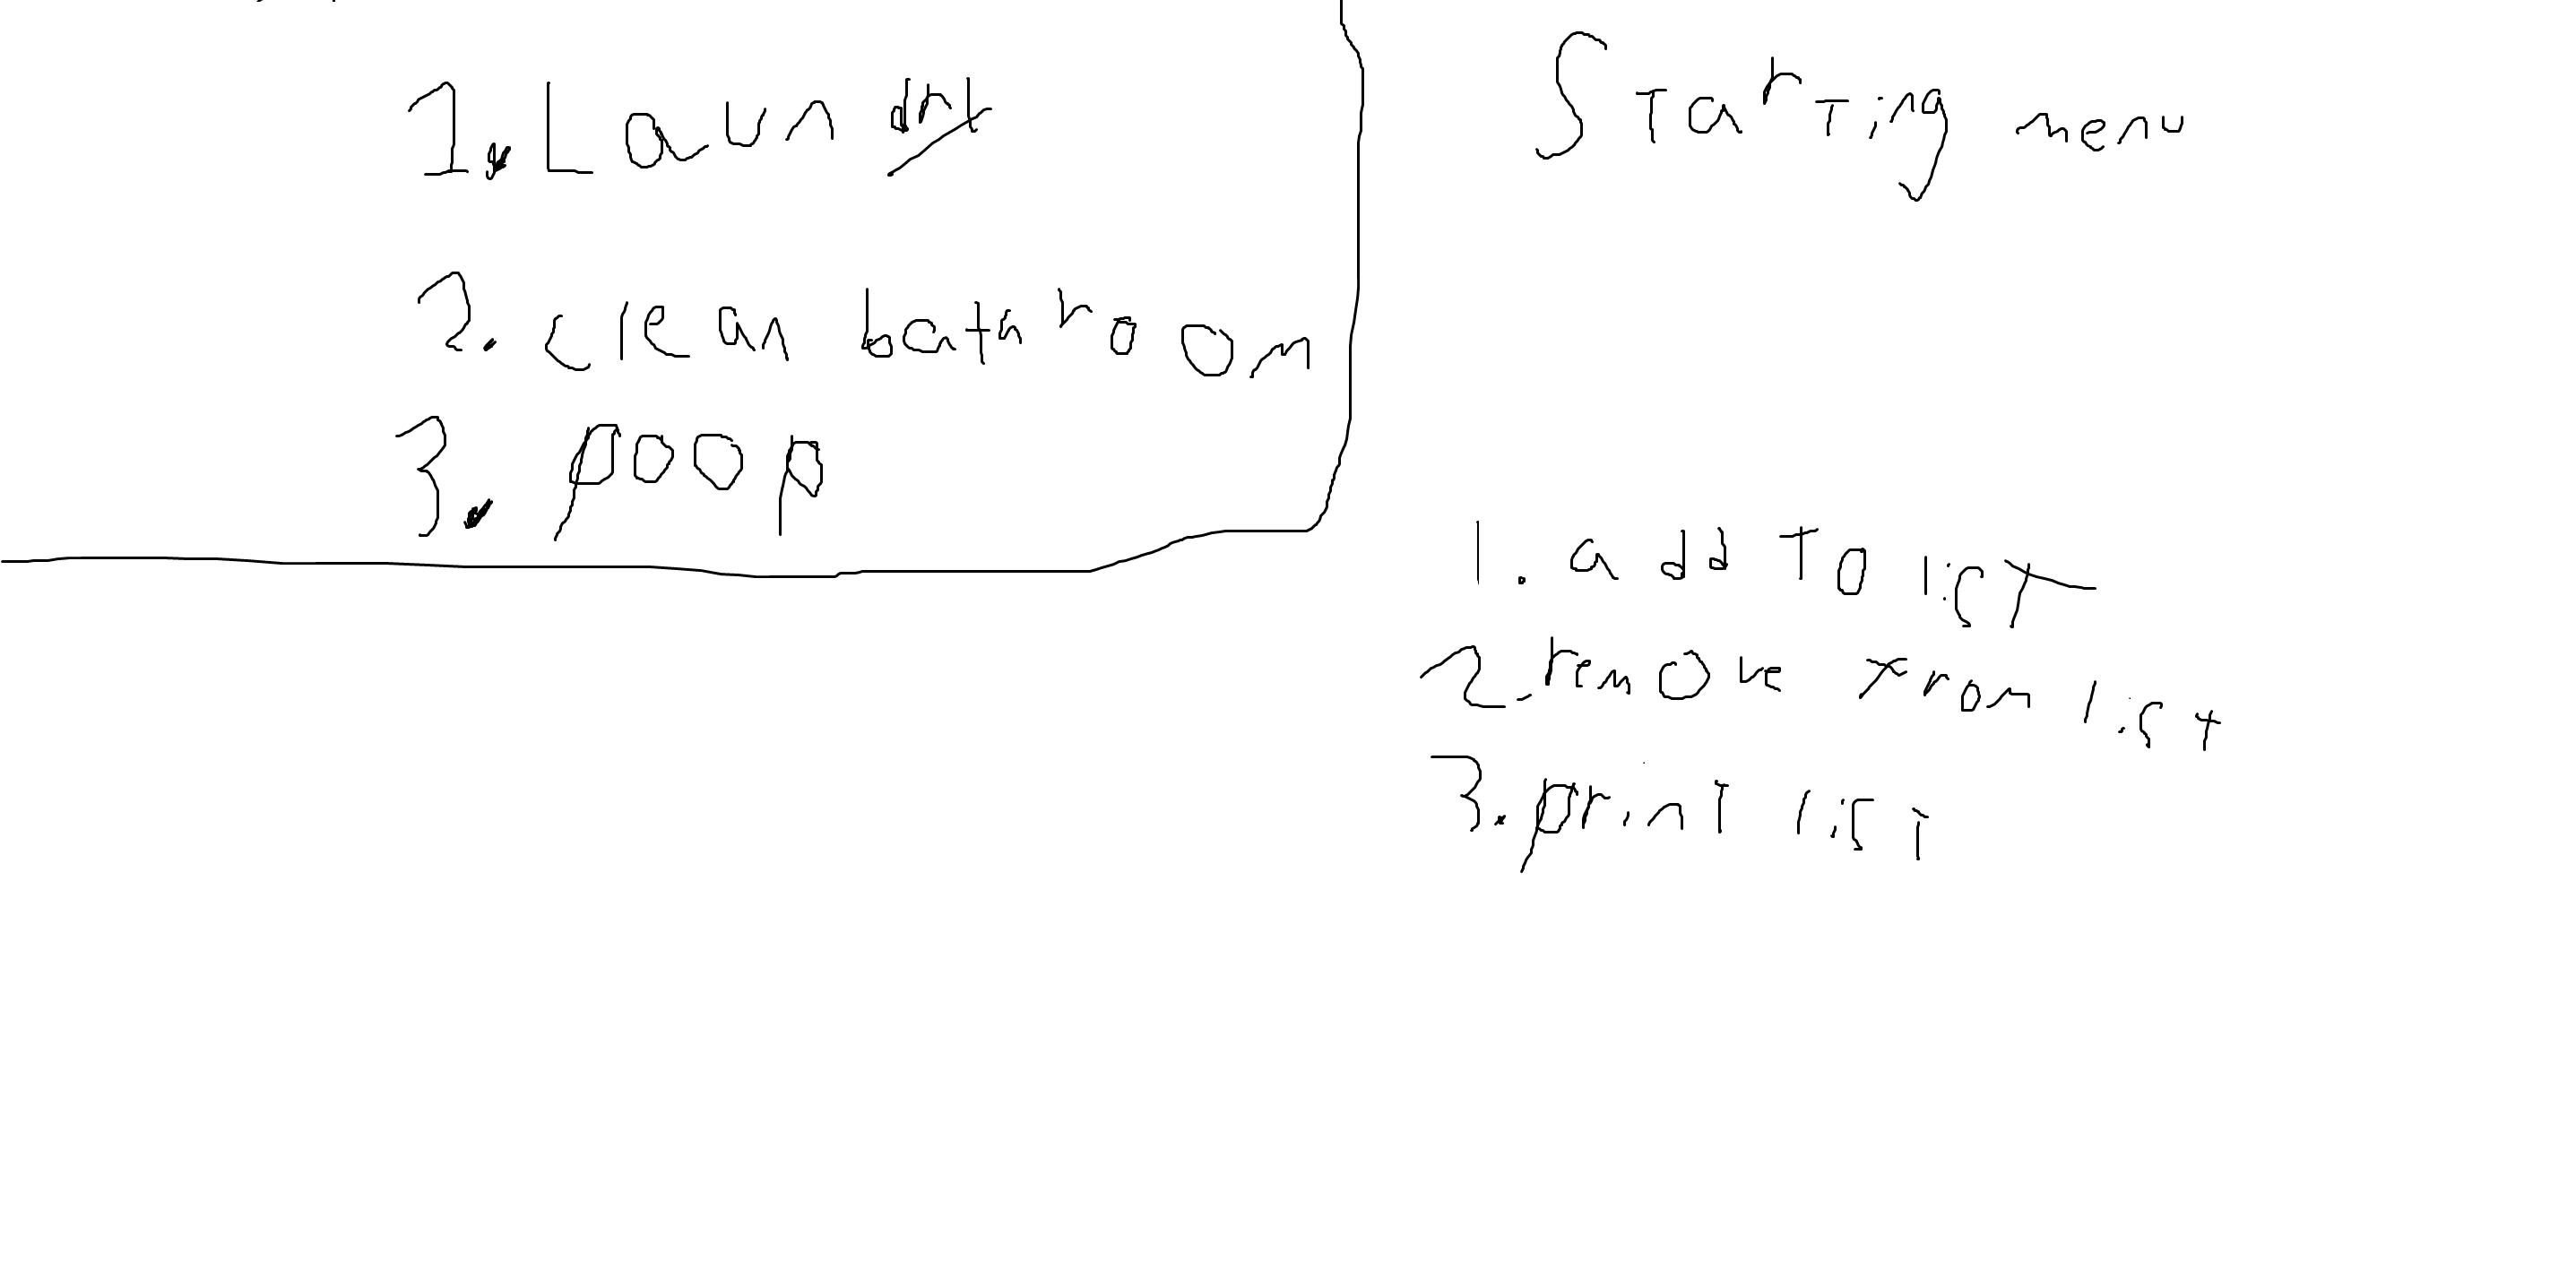 1. Laundry
2. clean bathroom
3. poop
Starting menu
1. add to list
2. remove from list
3. print list